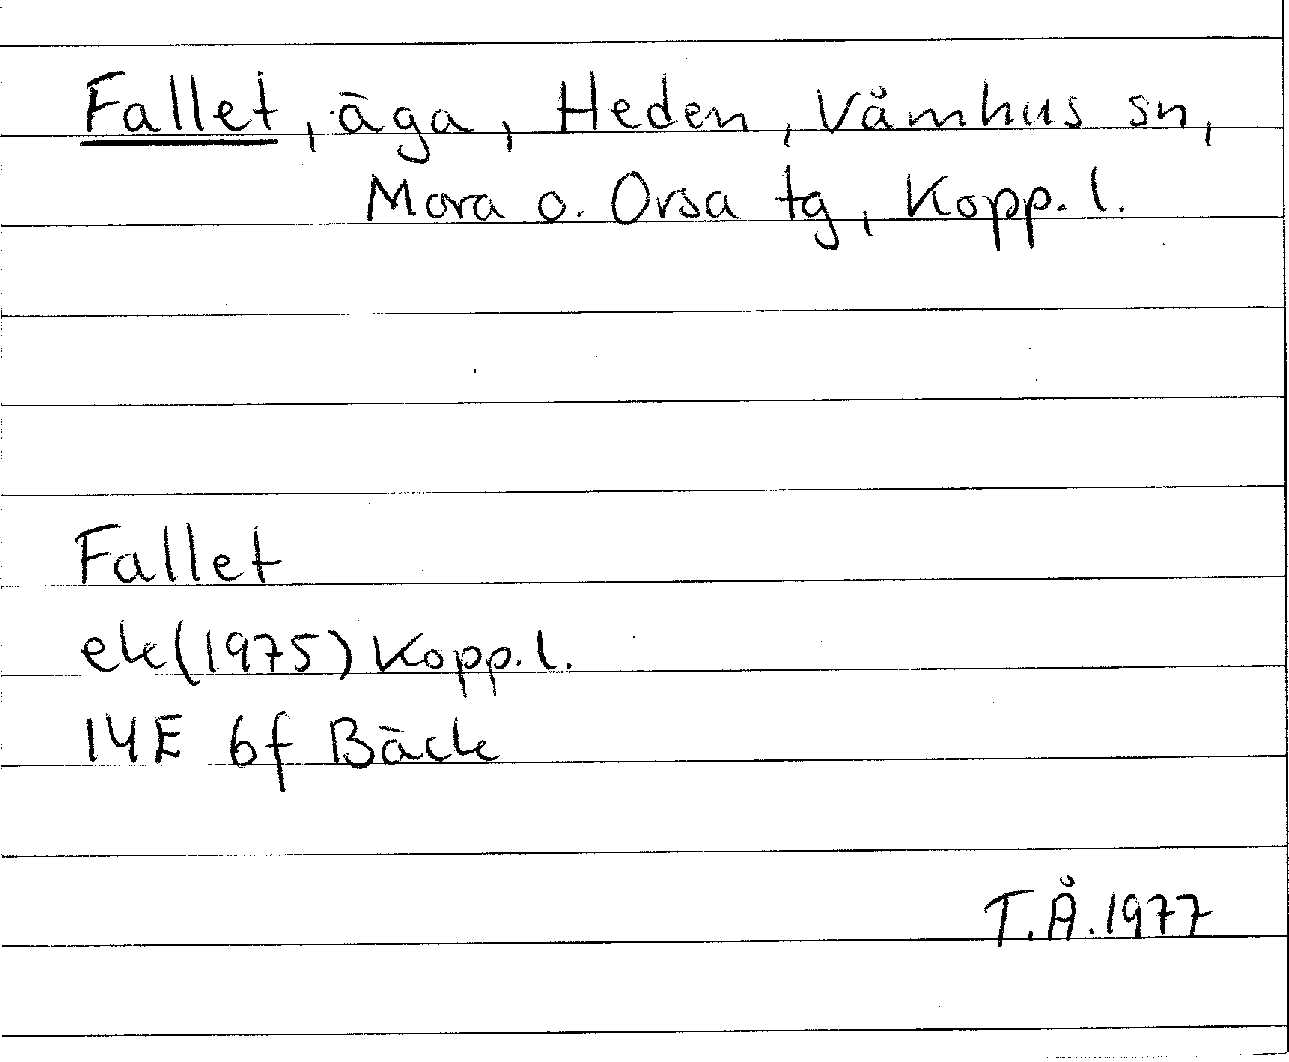 Fallet, äga, Heden, Våmhus sn,
Mora o. Orsa tg, Kopp. l.
Fallet
ek(1975) Kopp. l.
14E 6f Bäck
T.Å.1977